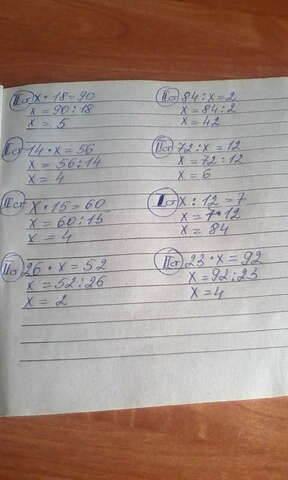 II ст x • 18 = 90
x = 90 : 18
x = 5
II ст 14 • x = 56
x = 56 : 14
x = 4
II ст x • 15 = 60
x = 60 : 15
x = 4
II ст 26 • x = 52
x = 52 : 26
x = 2
II ст 84 : x = 2
x = 84 : 2
x = 42
II ст 72 : x = 12
x = 72 : 12
x = 6
I ст x : 12 = 7
x = 7 • 12
x = 84
II ст 23 • x = 92
x = 92 : 23
x = 4